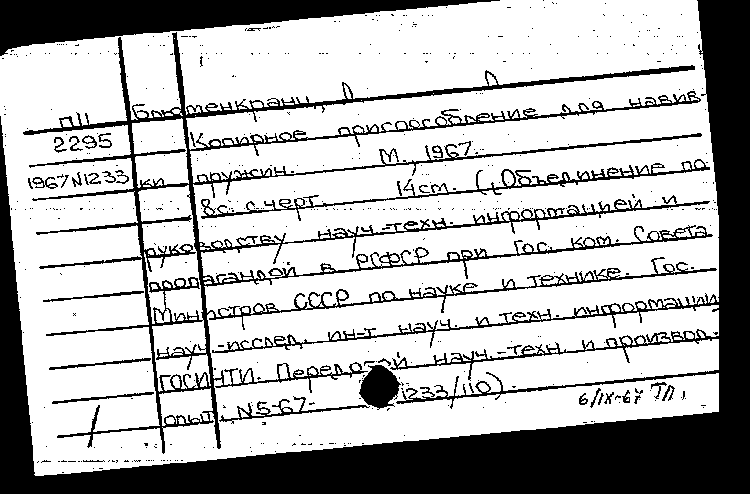 П11 Блюменкранц,
2295 Копирное приспособление для навив-
1967N1233 ки пружин. М., 1967.
8с. с черт. 14см. (Объединение по
руководству науч.-техн. информацией и
пропагандой в РСФСР при Гос. ком. Совета
Министров СССР по науке и технике. Гос.
науч.-исслед. ин-т науч. и техн. информации
ГОСИНТИ. Передовой науч.-техн. и производ.
опыт; N5-67- 1233/110).
6/IX-67